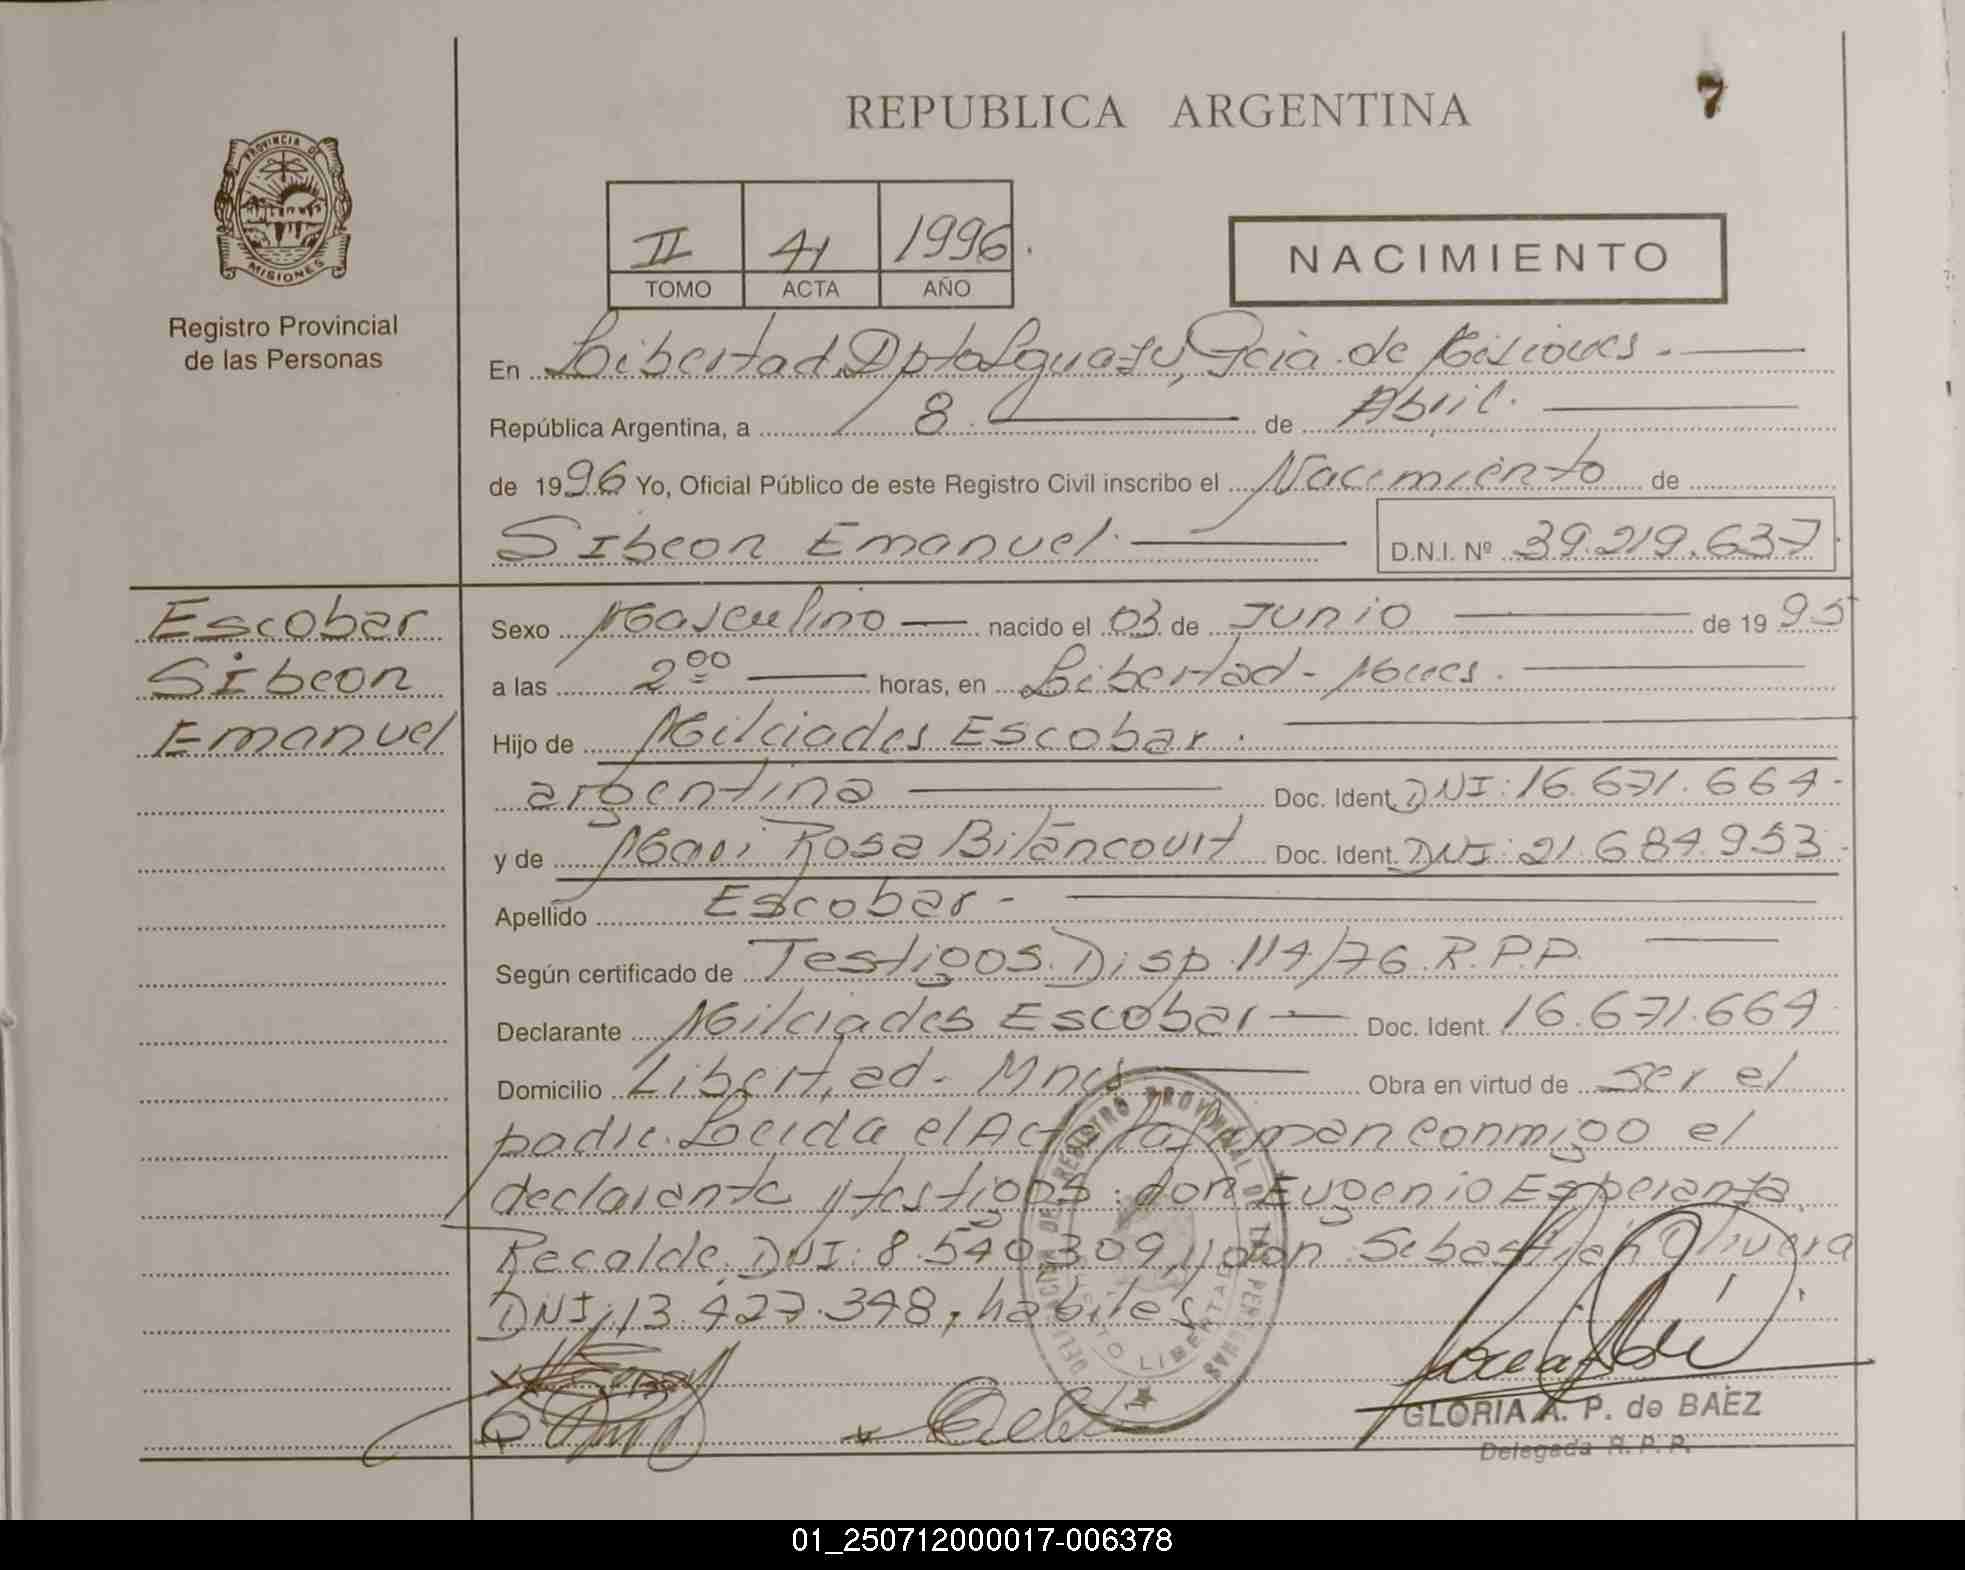 REPUBLICA ARGENTINA
7
PROVINCIA DE
MISIONES
Registro Provincial
de las Personas
II 41 1996
TOMO ACTA AÑO
NACIMIENTO
En Libertad, Dpto Iguazu, Pcia de Misiones.
República Argentina, a 8 de Abril.
de 1996 Yo, Oficial Público de este Registro Civil inscribo el Nacimiento de
Sibeon Emanuel. D.N.I. Nº 39.219.637
Escobar
Sibeon
Emanuel
Sexo Masculino nacido el 03 de Junio de 1995
a las 2 00 horas, en Libertad - Mnes.
Hijo de Milciades Escobar.
argentina Doc. Ident. DNI: 16.671.664
y de Rosa Bitancourt Doc. Ident. DNI: 21.684.953
Apellido Escobar
Según certificado de Testigos. Disp. 114/76 R.P.P.
Declarante Milciades Escobar Doc. Ident. 16.671.664
Domicilio Libertad - Mnes Obra en virtud de ser el
padre. Leida el Acta la firman conmigo el
declarante y testigos: don Eugenio Esperanza
Recalde DNI: 8.540.309, y don Sebastián Olivera
DNI: 13.427.348, habiles
DELEGACION DE REGISTRO PROVINCIAL DE LAS PERSONAS
PUERTO LIBERTAD
GLORIA A. P. de BAEZ
Delegada R. P. P.
01_250712000017-006378